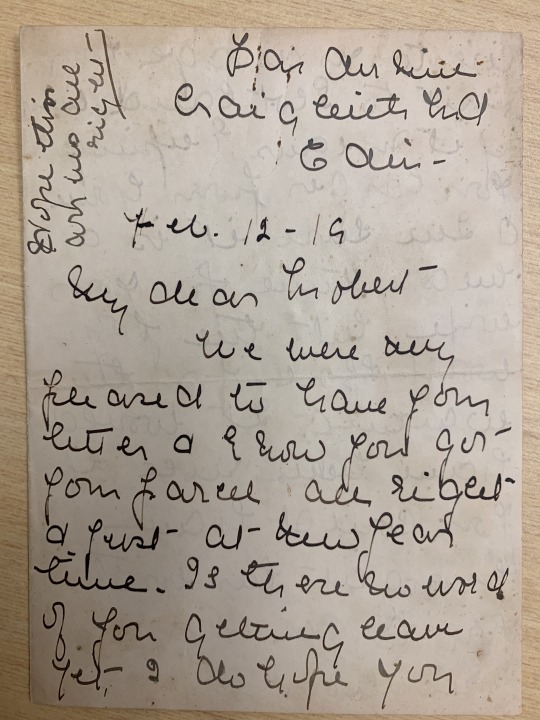 Craigleith Rd
Edin-
Feb. 12-19
My dear Robert
We were very
pleased to have your
letter & know you got
your parcel all right
& just at New Year
time. Is there no word
of you getting leave
yet, I do hope you
Hope this
will
right